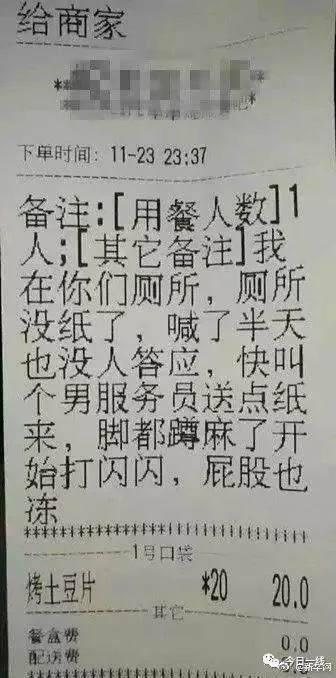 给商家
吧*
下单时间: 11-23 23:37
备注:[用餐人数]1
人;[其它备注]我
在你们厕所，厕所
没纸了，喊了半天
也没人答应，快叫
个男服务员送点纸
来，脚都蹲麻了开
始打闪闪，屁股也
冻
1号口袋
烤土豆片 *20 20.0
其它
餐盒费 0.0
配送费
今日一线